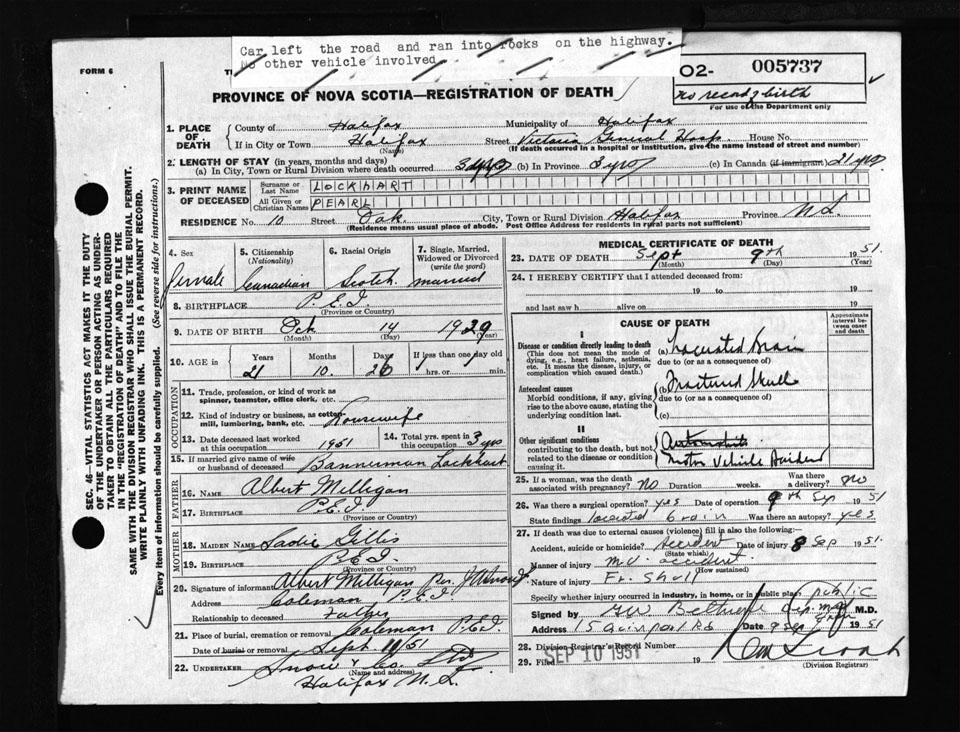 Car left the road and ran into rocks on the highway.
No other vehicle involved
FORM 6
O2- 005737
no record of birth
For use of the Department only
PROVINCE OF NOVA SCOTIA—REGISTRATION OF DEATH
1. PLACE OF DEATH
County of Halifax Municipality of Halifax
If in City or Town Halifax Street Victoria General Hosp. House No.
(Name) (If death occurred in a hospital or institution, give the name instead of street and number)
2. LENGTH OF STAY (in years, months and days)
(a) In City, Town or Rural Division where death occurred 3 (b) In Province 3 yrs (c) In Canada (if immigrant) 21 yrs
3. PRINT NAME OF DECEASED
Surname or Last Name LOCKHART
All Given or Christian Names PEARL
RESIDENCE No. 10 Street Oak City, Town or Rural Division Halifax Province N.S.
(Residence means usual place of abode. Post Office Address for residents in rural parts not sufficient)
4. Sex
Female
5. Citizenship
(Nationality)
Canadian
6. Racial Origin
Scotch
7. Single, Married, Widowed or Divorced
(write the word)
married
8. BIRTHPLACE P.E.I.
(Province or Country)
9. DATE OF BIRTH Oct. 14 1929
(Month) (Day)
10. AGE in Years Months Days If less than one day old
21 10 26 hrs. or min.
OCCUPATION
11. Trade, profession, or kind of work as spinner, teamster, office clerk, etc.
12. Kind of industry or business, as cotton-mill, lumbering, bank, etc. Housewife
13. Date deceased last worked at this occupation 1951
14. Total yrs. spent in this occupation 3 yrs
15. If married give name of wife or husband of deceased Bannerman Lockhart
FATHER
16. NAME Albert Milligan
17. BIRTHPLACE P.E.I.
(Province or Country)
MOTHER
18. MAIDEN NAME Sadie Gillis
19. BIRTHPLACE P.E.I.
(Province or Country)
20. Signature of informant Albert Milligan Per.
Address Coleman P.E.I.
Relationship to deceased Father
21. Place of burial, cremation or removal Coleman P.E.I.
Date of burial or removal Sept. 11/51
22. UNDERTAKER Snow & Co. Ltd
(Name and address)
Halifax N.S.
MEDICAL CERTIFICATE OF DEATH
23. DATE OF DEATH Sept 9th 1951
(Month) (Day) (Year)
24. I HEREBY CERTIFY that I attended deceased from:
19 to 19
and last saw h alive on 19
CAUSE OF DEATH
Approximate interval between onset and death
I
Disease or condition directly leading to death
(This does not mean the mode of dying, e.g., heart failure, asthenia, etc. It means the disease, injury, or complication which caused death.)
(a) Lacerated Brain
due to (or as a consequence of)
Antecedent causes
Morbid conditions, if any, giving rise to the above cause, stating the underlying condition last.
(b) Fractured Skull
due to (or as a consequence of)
(c)
II
Other significant conditions
contributing to the death, but not related to the disease or condition causing it.
Motor Vehicle Accident
25. If a woman, was the death associated with pregnancy? No Duration weeks. Was there a delivery? No
26. Was there a surgical operation? yes Date of operation 9th Sep 1951
State findings lacerated brain Was there an autopsy? yes
27. If death was due to external causes (violence) fill in also the following:—
Accident, suicide or homicide? Accident Date of injury 8 Sep 1951.
(State which)
Manner of injury M.V. accident
(How sustained)
Nature of injury Fr. Skull
Specify whether injury occurred in industry, in home, or in public place public
Signed by M.D.
Address Date 9 Sep 1951
28. Division Registrar's Record Number
29. Filed SEP 10 1951 19
(Division Registrar)
SEC. 46—VITAL STATISTICS ACT MAKES IT THE DUTY
OF THE UNDERTAKER OR PERSON ACTING AS UNDER-
TAKER TO OBTAIN ALL THE PARTICULARS REQUIRED
IN THE "REGISTRATION OF DEATH" AND TO FILE THE
SAME WITH THE DIVISION REGISTRAR WHO SHALL ISSUE THE BURIAL PERMIT.
WRITE PLAINLY WITH UNFADING INK. THIS IS A PERMANENT RECORD.
Every item of information should be carefully supplied. (See reverse side for instructions.)